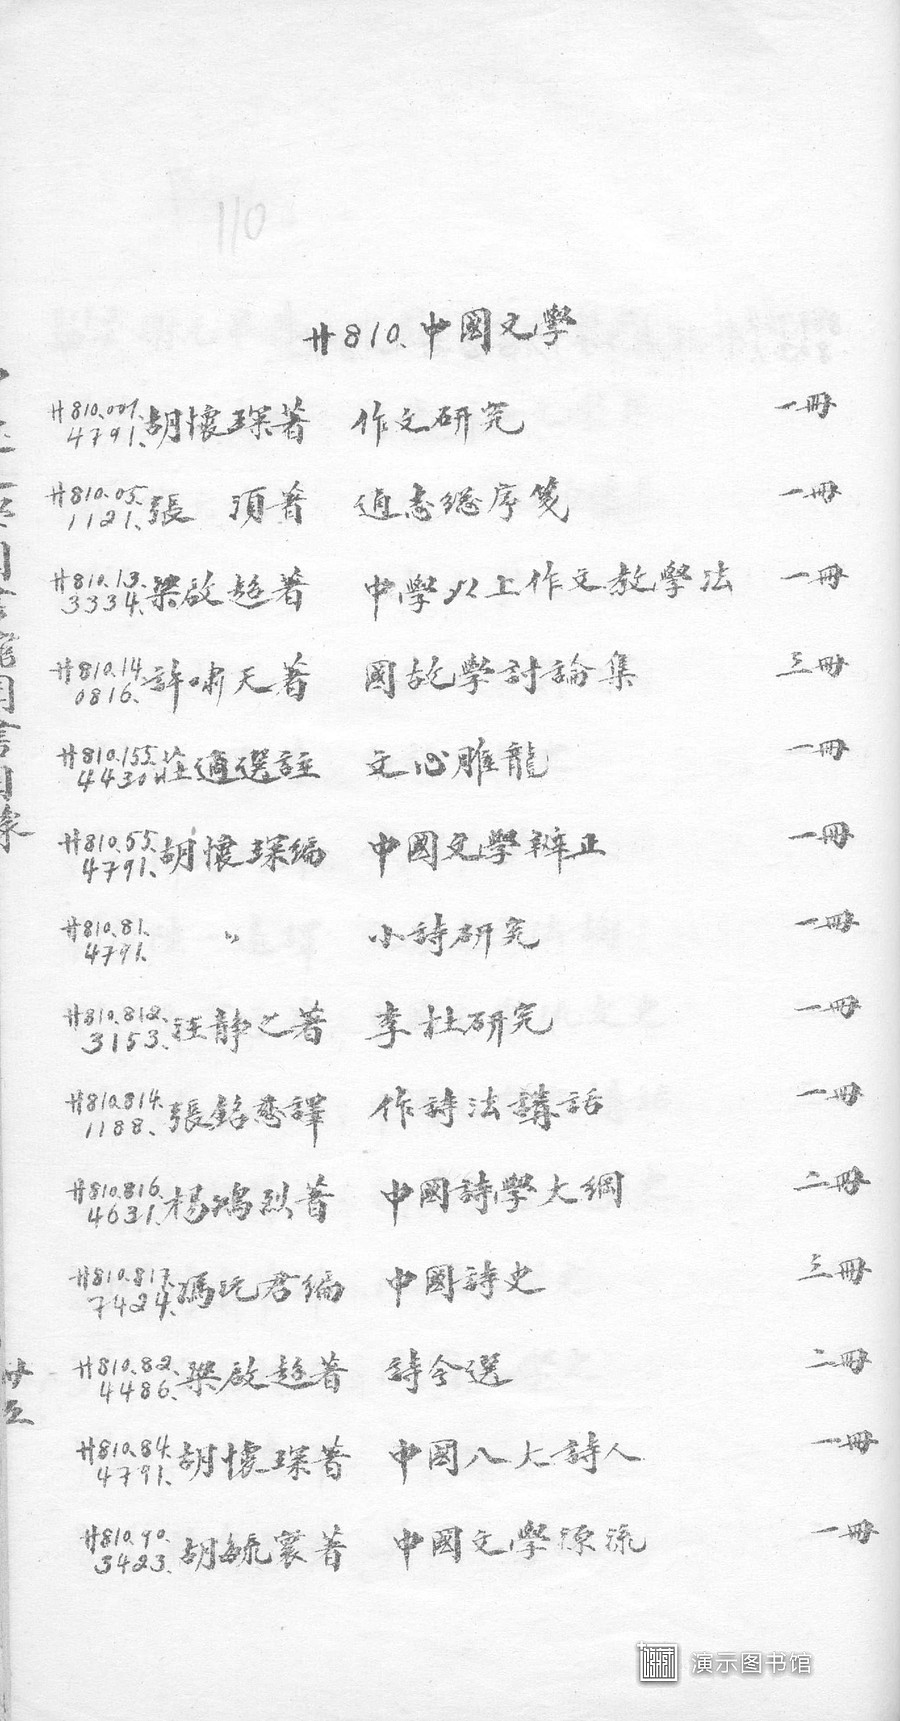 110
卄810.中國文學
卄810.007. 4791. 胡懷琛著 作文研究 一冊
卄810.05. 1121. 張須著 通志總序箋 一冊
卄810.13. 3334. 梁啟超著 中學以上作文教學法 一冊
卄810.14. 0816. 許嘯天著 國故學討論集 三冊
卄810.155. 4430. 莊適選註 文心雕龍 一冊
卄810.55. 4791. 胡懷琛編 中國文學辨正 一冊
卄810.81. 4791. 〃 小詩研究 一冊
卄810.812. 3153. 汪靜之著 李杜研究 一冊
卄810.814. 1188. 張銘慈譯 作詩法講話 一冊
卄810.816. 4631. 楊鴻烈著 中國詩學大綱 二冊
卄810.817. 7424. 馮沅君編 中國詩史 三冊
卄810.82. 4486. 梁啟超著 詩令選 二冊
卄810.84. 4791. 胡懷琛著 中國八大詩人 一冊
卄810.90. 3423. 胡毓寰著 中國文學源流 一冊
圖書館圖書目錄
卅五
演示图书馆